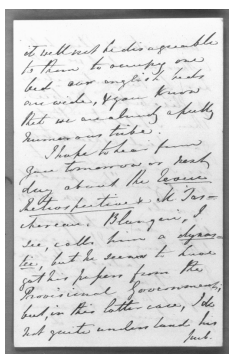 it will not be disagreeable
to them to occupy one
bed our english beds
are wide, & you know
that we are already a pretty
numerous tribe.
I hope to hear from
you tomorrow or next
day about the Revue
Retrospective & M Tas-
chereau. Blanqui, I
see, calls him a dynas-
tic, but he seems to have
got his papers from the
Provisional Government,
but, in this latter case, I do
not quite understand his